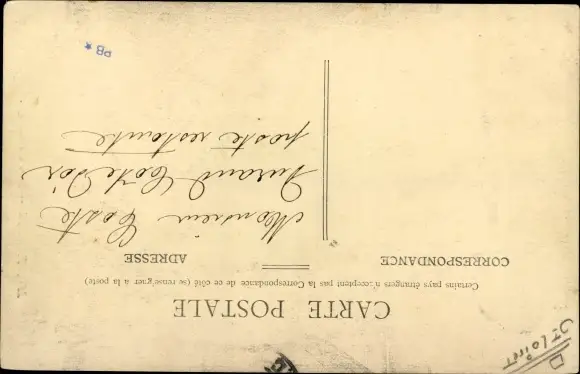 CARTE POSTALE
Certains pays étrangers n'acceptent pas la Correspondance de ce côté (se renseigner à la poste)
CORRESPONDANCE
ADRESSE
Monsieur Coste
Durand Côte d'Or
poste restante
PB